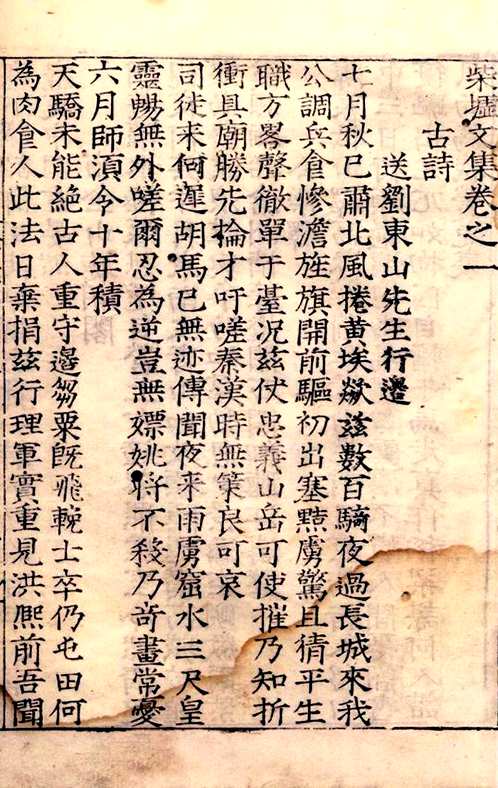 柴墟文集卷之一
古詩
送劉東山先生行邊
七月秋已肅北風捲黃埃歘玆數百騎夜過長城來我
公調兵食慘澹旌旗開前驅初出塞黠虜驚且猜平生
職方畧聲徹單于臺况玆仗忠義山岳可使摧乃知折
衝具廟勝先掄才吁嗟秦漢時無策良可哀
司徒來何遲胡馬已無迹傳聞夜來雨虜窟水三尺皇
靈暢無外嗟爾忍為逆豈無嫖姚將不殺乃奇畫常憂
六月師湏今十年積
天驕未能絕古人重守邊芻粟旣飛輓士卒仍屯田何
為肉食人此法日棄捐玆行理軍實重見洪熈前吾聞